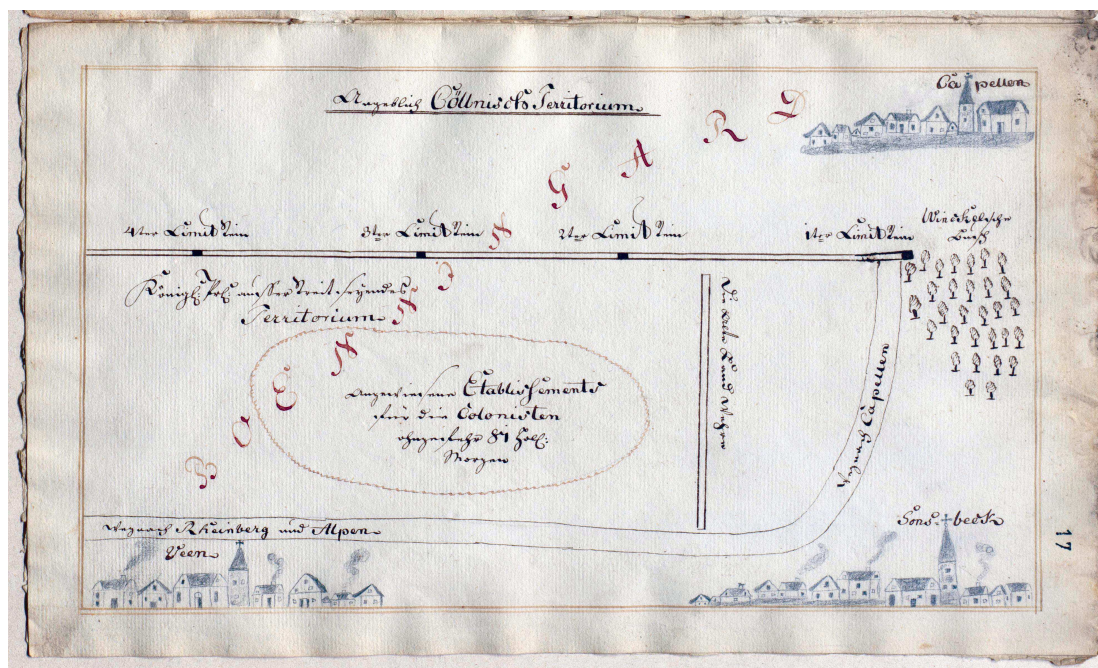 Angeblich Cöllnisches Territorium
Capellen
BOENNINGARD
4ter Limit Stein
3ter Limit Stein
2ter Limit Stein
1ter Limit Stein
Busch
Königl: Pr: ausser Streit seyendes
Territorium
Angewiesene Etablissements
für die Colonisten
ohngefehr 81 Holl:
Morgen
Die Land Wehre
Weg nach Capellen
Weg nach Rheinberg und Alpen
Veen
Sonsbeck
17